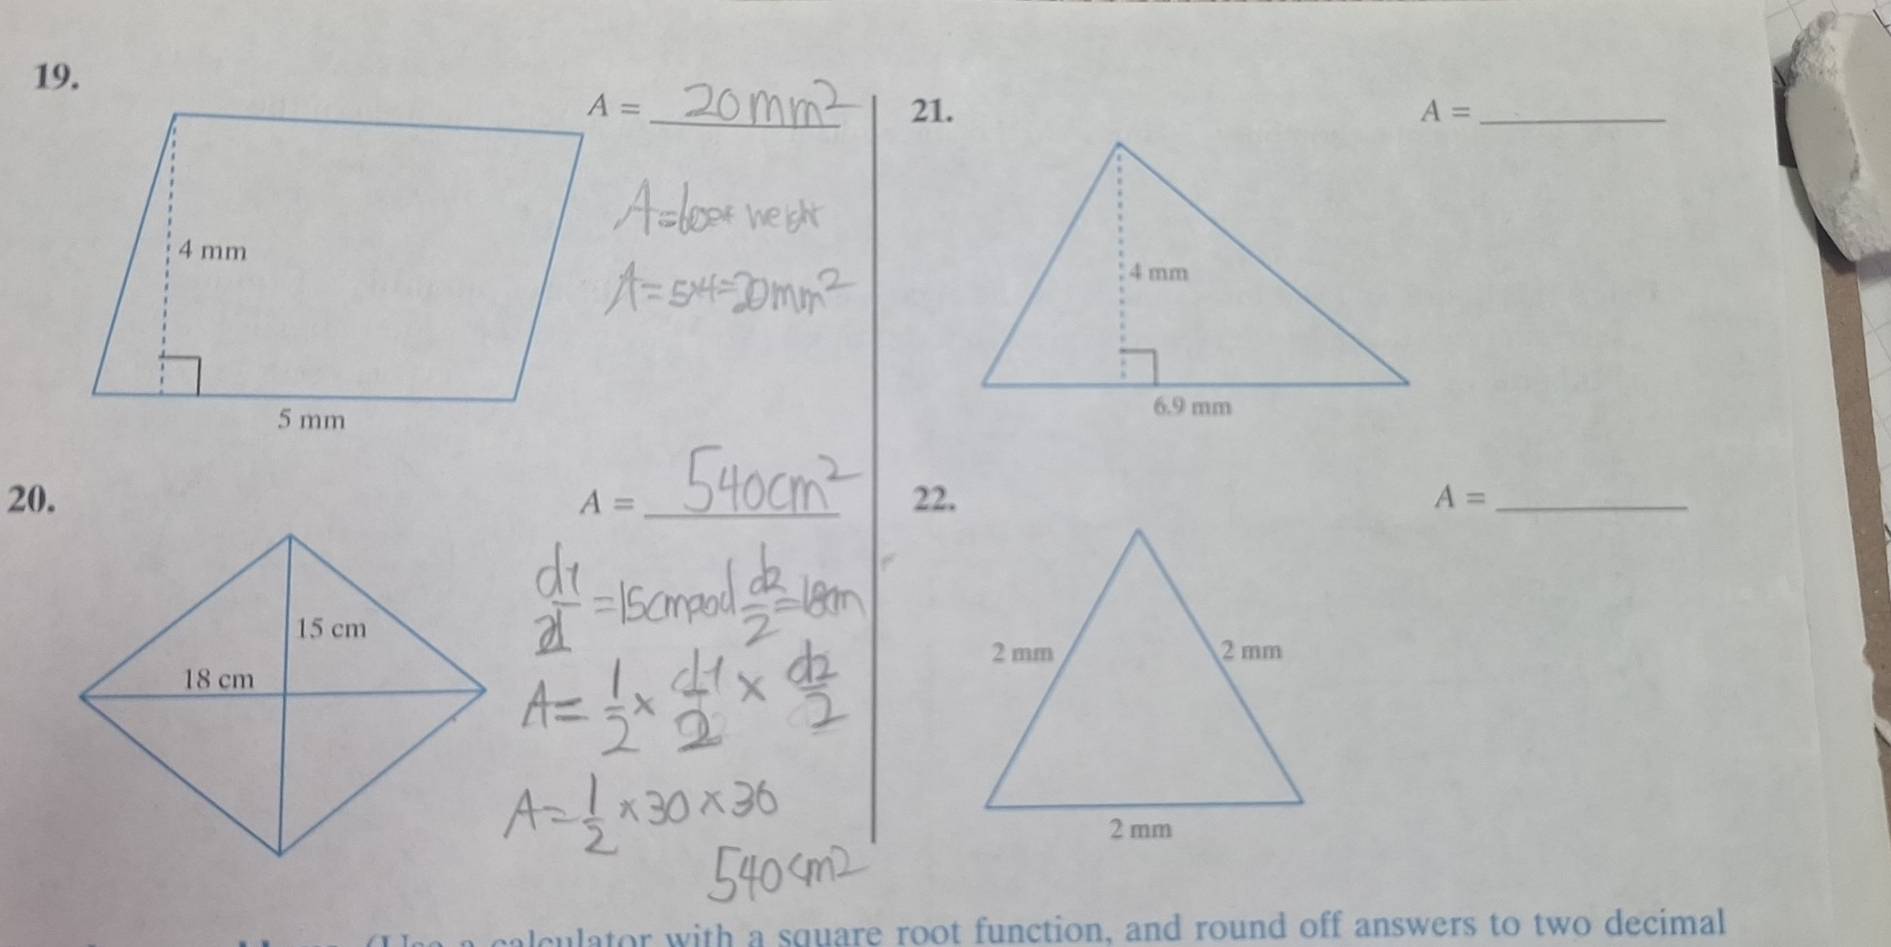 19.
A = 20mm²
A=base× height
A=5×4=20mm²
4 mm
5 mm
20.
A = 540cm²
15 cm
18 cm
d1/2 =15cm and d2/2=18cm
A= 1/2 × d1/2 × d2/2
A= 1/2 ×30×36
540cm²
21.
A =
4 mm
6.9 mm
22.
A =
2 mm
2 mm
2 mm
a calculator with a square root function, and round off answers to two decimal